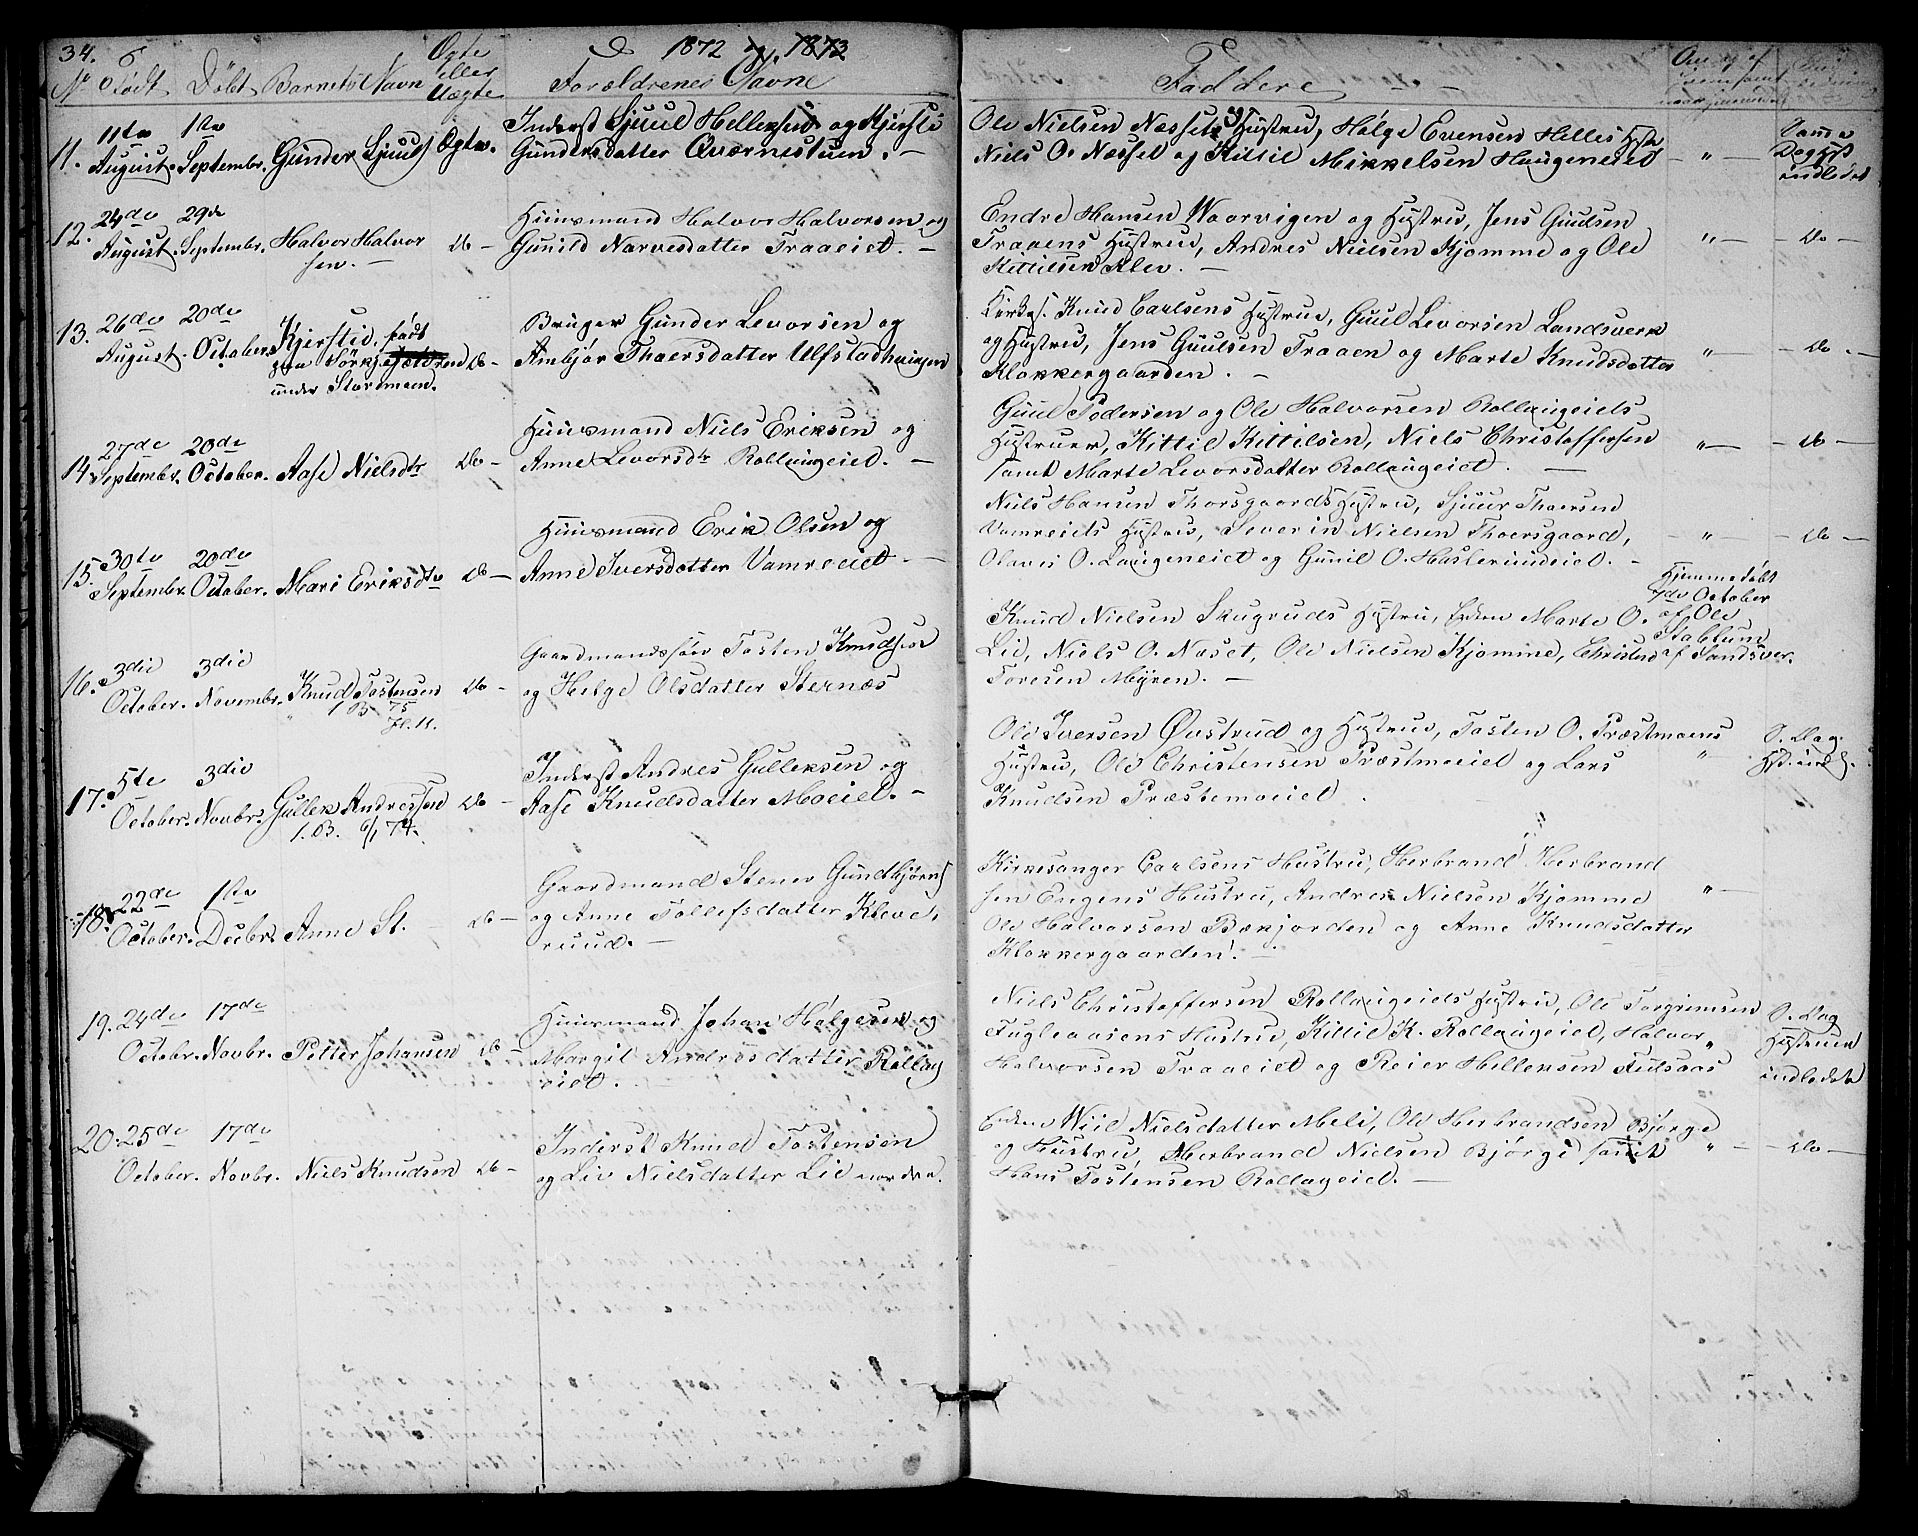 34. 1872 og 1873
No Født Døbt Barnets Navn Ægte eller Uægte Forældrenes Navne Faddere
11. 11te August. 1ste Septembr. Gunder Sjuuls Ægte.
Inderst Sjuul Helleksen og Kjersti
Gundersdatter Qværnstuen. —
Ole Nielsen Næssets Hustru, Helge Evensen Helles Hstr
Niels O. Næsset og Kitil Mikkelsen Haugeneiet — " —
Samme Dag Hst indledet
12. 24de August. 29de Septembr. Halvor Halvor
sen. — Do —
Huusmand Halvor Halvorsen og
Gunild Narvesdatter Traaeiet. —
Endre Hansen Vaarvigen og Hustru, Jens Guulsen
Traaens Hustru, Andres Nielsen Kjomme og Ole
Kittilsen Klev. —
" — — Do —
13. 26de August. 20de October. Kjersti, født
paa Sørkjæteren
under Stormoen. Do —
Bruger Gunder Levorsen og
Anbjør Thoersdatter Ulfstadhaugen
Kirkes. Knud Carlsens Hustru, Guul Levorsen Landsverk
og Hustru, Jens Guulsen Traaen og Marte Knudsdatter
Klokkergaarden. —
" — — Do —
14. 27de Septembr. 20de October. Aase Nielsdtr Do —
Huusmand Niels Eriksen og
Anne Levorsdtr Rollaugeiet. —
Guul Pedersen og Ole Halvorsen Rollaugeiets
Hustruer, Kittil Kittilsen, Niels Christoffersen
samt Marte Levorsdatter Rollaugeiet. —
" — — Do —
15. 30te Septembr. 20de October. Mari Eriksdtr Do —
Huusmand Erik Olsen og
Anne Iversdatter Vamreeiet. —
Niels Hansen Thorsgaards Hustru, Sjuur Thoersen
Vamreeiets Hustru, Severin Nielsen Thoersgaard,
Olaves O. Laugeneiet og Gunil O. Haslerudeiet. —
— " — — Do —
16. 3die October. 3die Novembr. Knud Tostensen Do —
1.B. 75
Fl. 11.
Gaardmandssøn Tosten Knudsen
og Helge Olsdatter Sternæs
Knud Nielsen Skugruds Hustru, Enken Marte O.
Lid, Niels O. Næset, Ole Nielsen Kjomme, Christen
Toresen Myren. —
Hjemmedøbt
7de October
af Ole
Stablum
af Sandsver.
17. 5te October. 3die Novbr. Gullek Andressen Do —
1.B. 6/1 74.
Inderst Andres Gulleksen og
Aase Knudsdatter Moeiet. —
Ole Iversen Øvstrud og Hustru, Tosten O. Præstmoens
Hustru, Ole Christensen Præstmoeiet og Lars
Knudsen Præstemoeiet.
" —
S. Dag.
Hst. indl.
18. 22de October. 1ste Decbr. Anne St. Do —
Gaardmand Stener Gundbjørns
og Anne Tollefsdatter Kleve,
ruud. —
Kirkesanger Carlsens Hustru, Herbrand Herbrand
sen Engens Hustru, Andres Nielsen Kjomme
Ole Halvorsen Bækjorden og Anne Knudsdatter
Klokkergaarden. —
" —
19. 24de Octobr. 17de Novbr. Petter Johansen Do —
Huusmand Johan Helgesen og
Margit Andresdatter Rollag
eiet. —
Niels Christoffersen Rollaugeiets Hustru, Ole Torgrimsen
Fugleaasens Hustru, Kittil K. Rollaugeiet, Halvor
Halvorsen Traaeiet og Reier Helleksen Juulsaas
"
S. Dag
Hustruen
indledet
20. 25de October. 17de Novbr. Niels Knudsen Do —
Inderst Knud Tostensen
og Liv Nielsdatter Lid nordre.
Enken Wiil Nielsdatter Meli, Ole Herbrandsen Bjørge
og Hustru, Herbrand Nielsen Bjørge samt
Hans Tostensen Rollageiet. —
" — — Do —